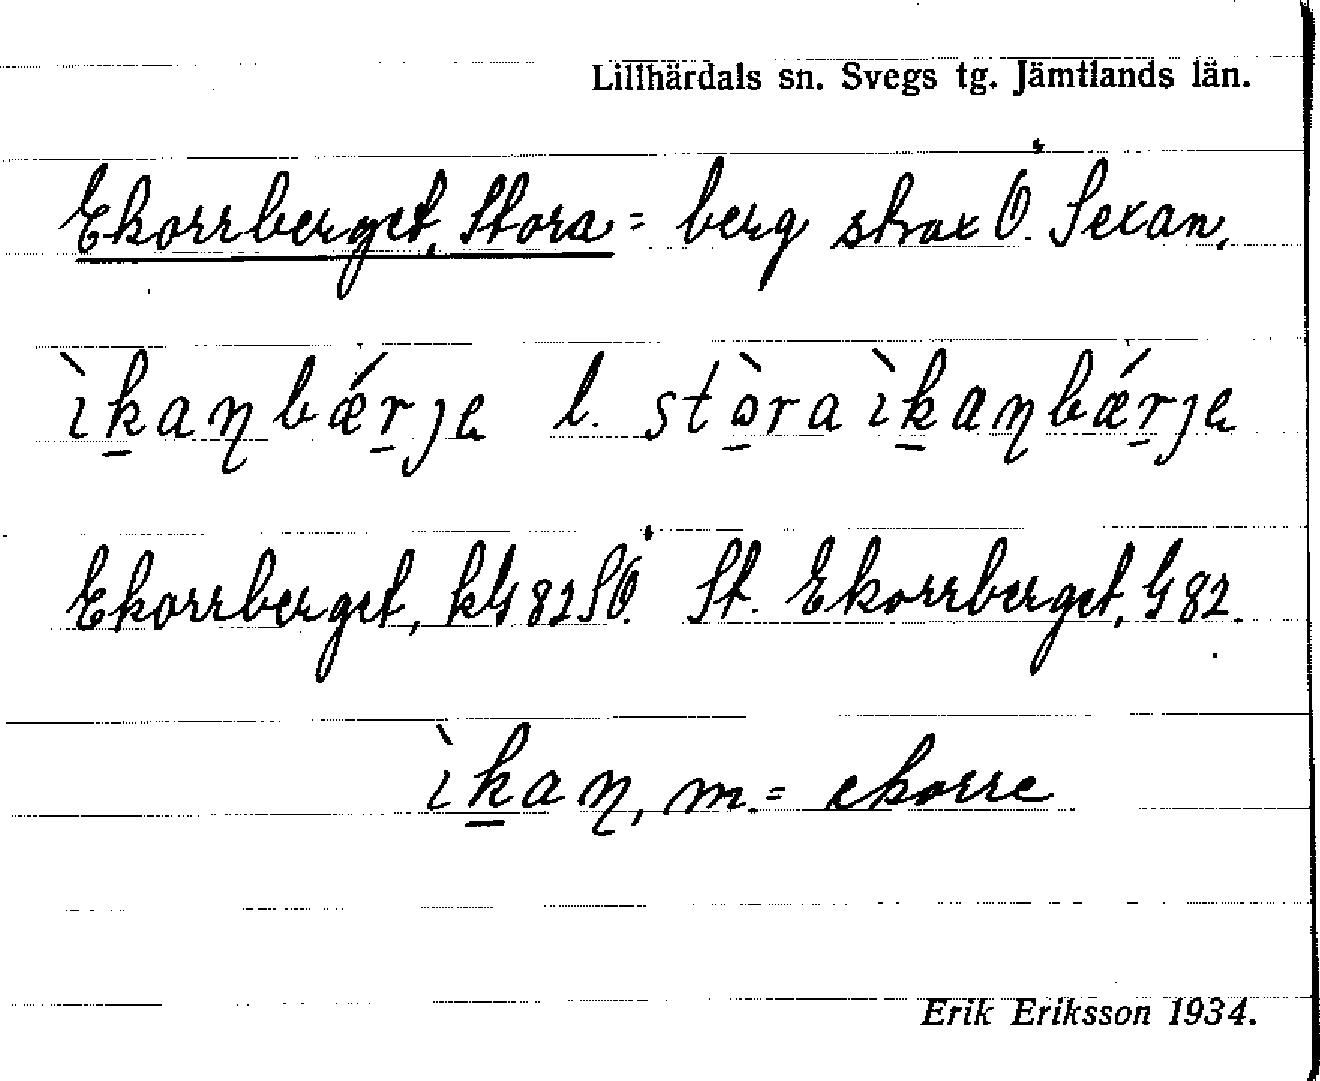 Lillhärdals sn. Svegs tg. Jämtlands län.
Ekorrberget, Stora = berg strax Ö. Sexan.
ìk̠aŋbǽr̠ȷe l. stò̠raìk̠aŋbǽr̠ȷe
Ekorrberget, kG 82 SÖ. St. Ekorrberget, G 82.
ìk̠aŋ, m. = ekorre
Erik Eriksson 1934.